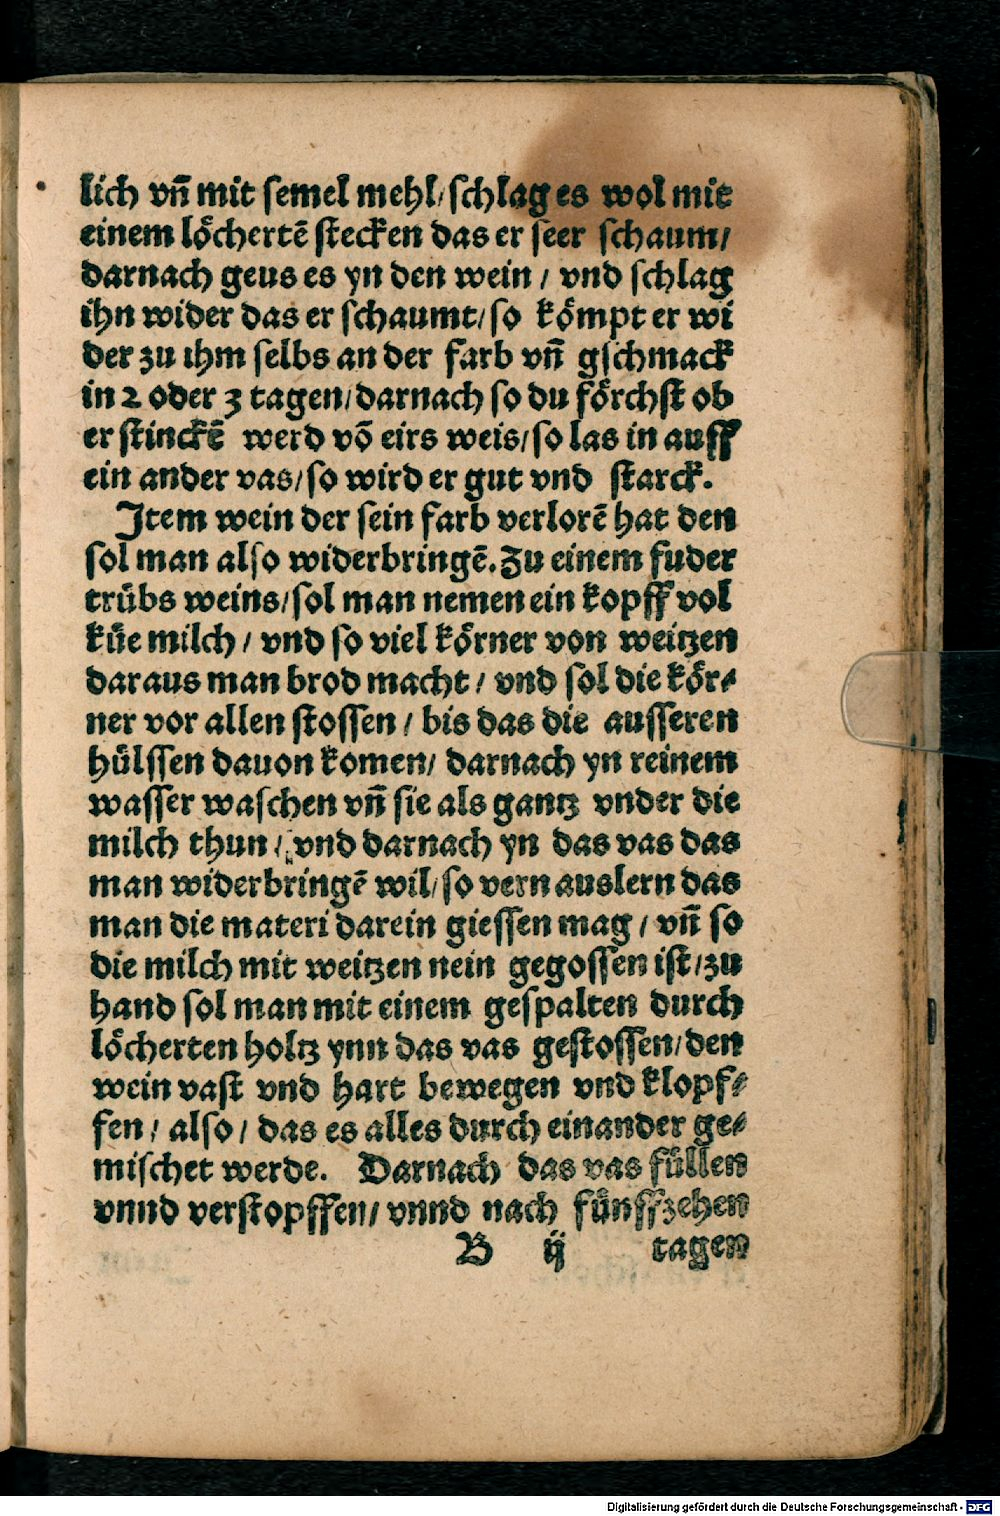 lich vñ mit semel mehl/schlag es wol mit
einem lȯ̈chertẽ stecken das er seer schaum/
darnach geus es yn den wein / vnd schlag
ihn wider das er schaumt/so kömpt er wi
der zu ihm selbs an der farb vñ gschmack
in 2 oder 3 tagen/darnach so du förchst ob
er stinckẽ werd võ eirs weis/so las in auff
ein ander vas/so wird er gut vnd starck.
Item wein der sein farb verlorẽ hat den
sol man also widerbringẽ. Zu einem fuder
trübs weins/sol man nemen ein kopff vol
küe milch / vnd so viel körner von weitzen
daraus man brod macht / vnd sol die kör⸗
ner vor allen stossen / bis das die ausseren
hülssen dauon komen/ darnach yn reinem
wasser waschen vñ sie als gantz vnder die
milch thun / vnd darnach yn das vas das
man widerbringẽ wil/so vern auslern das
man die materi darein giessen mag / vñ so
die milch mit weitzen nein gegossen ist/zu
hand sol man mit einem gespalten durch
löcherten holtz ynn das vas gestossen/den
wein vast vnd hart bewegen vnd klopf⸗
fen/ also/ das es alles durch einander ge⸗
mischet werde. Darnach das vas füllen
vnnd verstopffen/ vnnd nach fünffzehen
B ij tagen
Digitalisierung gefördert durch die Deutsche Forschungsgemeinschaft - DFG